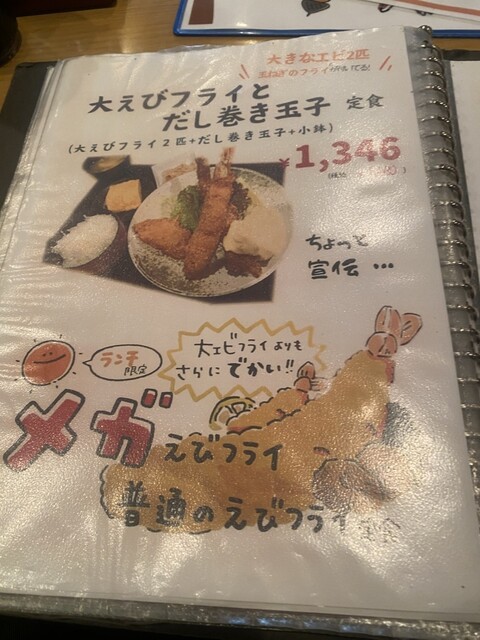 大きなエビ2匹
玉ねぎのフライ
大えびフライと
だし巻き玉子 定食
(大えびフライ2匹+だし巻き玉子+小鉢)
¥1,346
ちょっと
宣伝…
ランチ
限定
大エビフライよりも
さらにでかい!!
メガえびフライ
普通のえびフライ定食